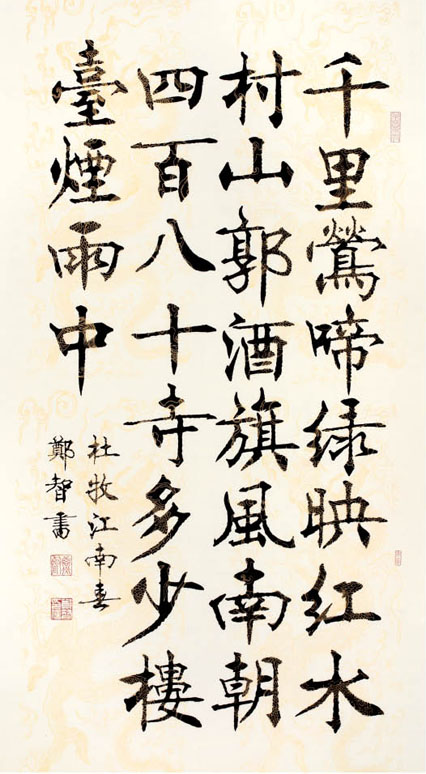 千里鶯啼绿映红水
村山郭酒旗風南朝
四百八十寺多少樓
臺煙雨中
杜牧江南春
鄭智書